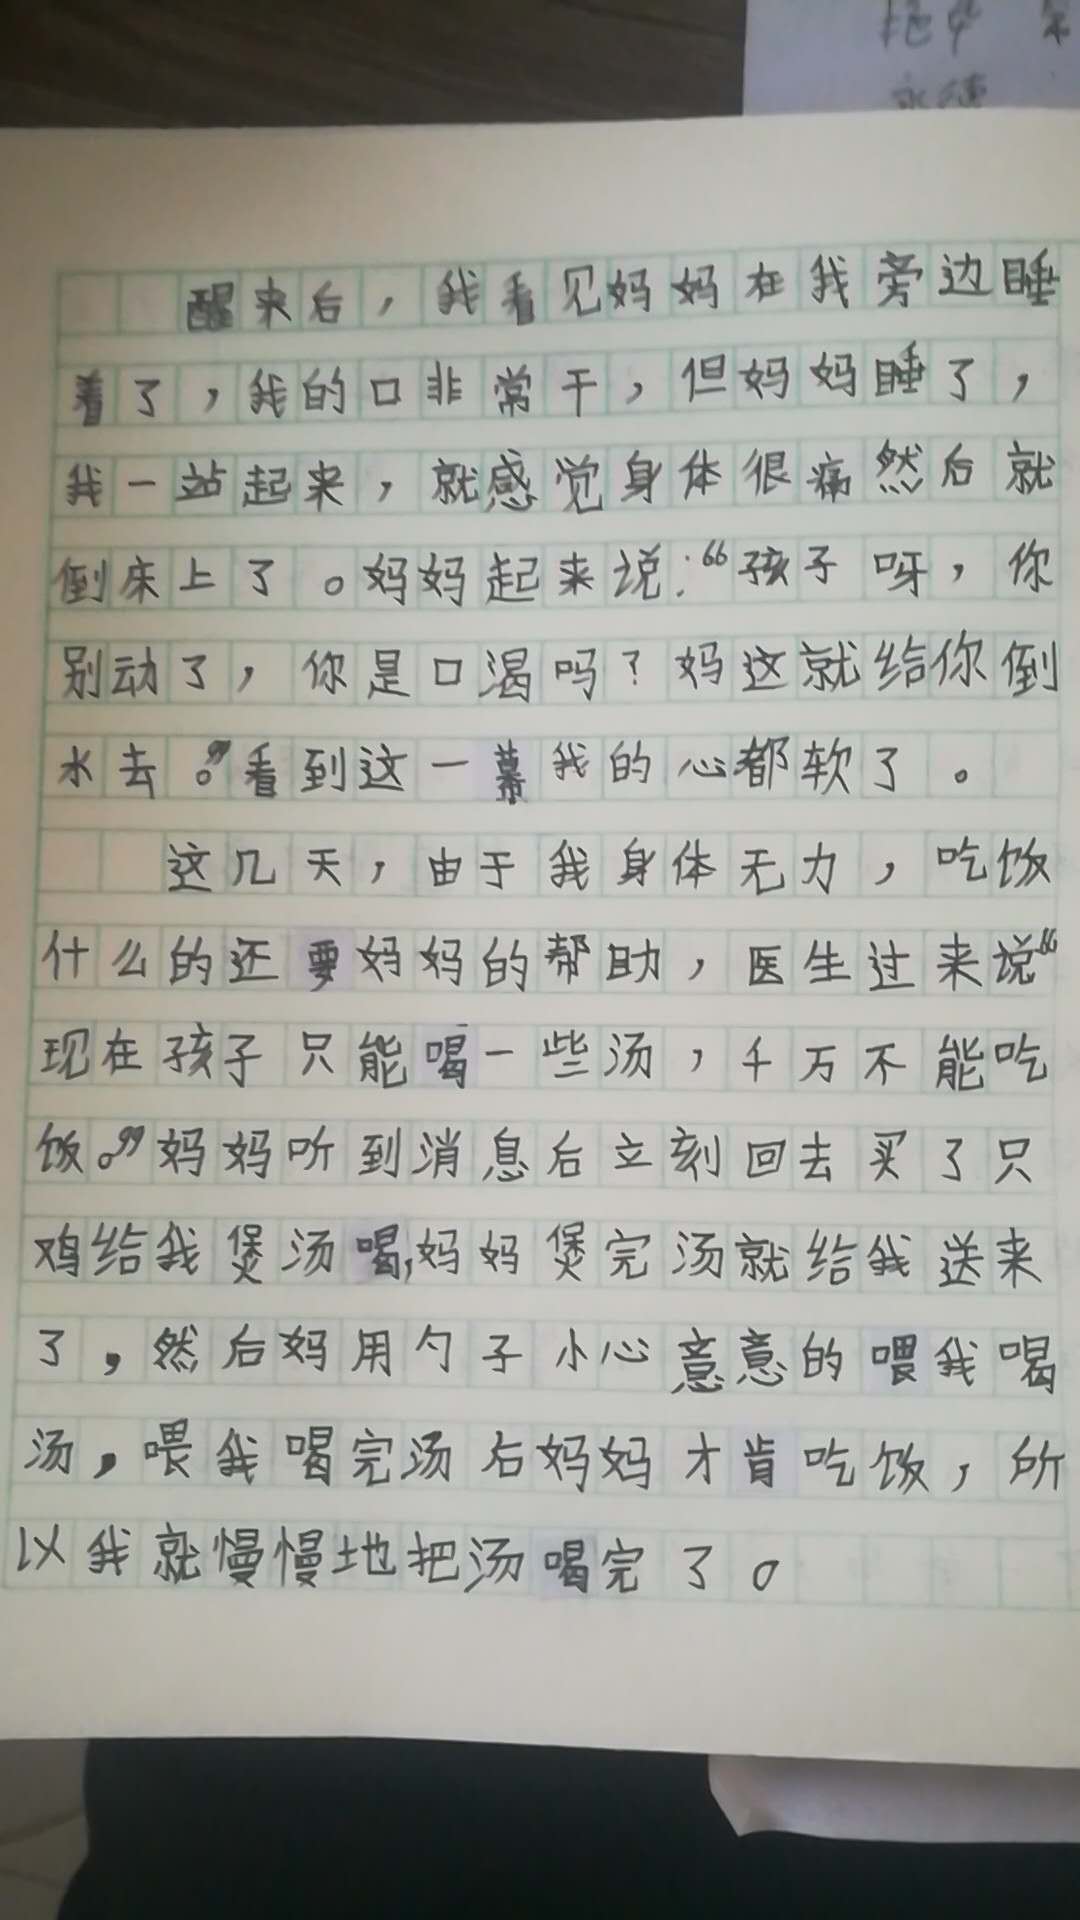 醒来后，我看见妈妈在我旁边睡
着了，我的口非常干，但妈妈睡了，
我一站起来，就感觉身体很痛然后就
倒床上了。妈妈起来说：“孩子呀，你
别动了，你是口渴吗？妈这就给你倒
水去。”看到这一幕我的心都软了。
这几天，由于我身体无力，吃饭
什么的还要妈妈的帮助，医生过来说“
现在孩子只能喝一些汤，千万不能吃
饭。”妈妈听到消息后立刻回去买了只
鸡给我煲汤喝，妈妈煲完汤就给我送来
了，然后妈用勺子小心意意的喂我喝
汤，喂我喝完汤后妈妈才肯吃饭，所
以我就慢慢地把汤喝完了。